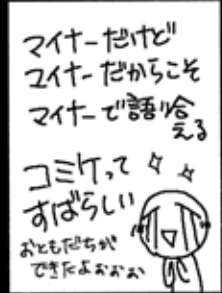 マイナーだけど
マイナーだからこそ
マイナーで語り合
える
コミケって
すばらしい
おともだちが
できたよぉぉぉ